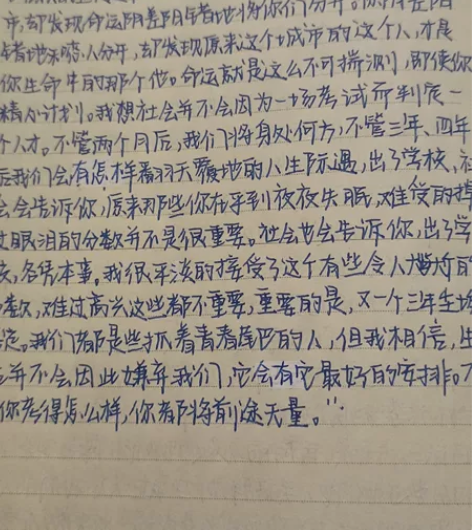 市,却发现命运阴差阳错地将你们分开。你阴差阳
错地来嘻,人分开,却发现原来这个城市的这个人,才是
你生命中的那个他。命运就是这么不可揣测,即使你
精心计划。我想社会并不会因为一场考试而判定一
个人才。不管两个月后,我们将身处何方,不管三年、四年
后我们会有怎样翻天覆地的人生际遇,出了学校,社
会会告诉你,原来那些你在乎到夜夜失眠,难受的掉
过眼泪的分数并不是很重要。社会也会告诉你,出了学
校,各凭本事。我很平淡的接受了这个有些令人尴尬的
分数,难过高兴这些都不重要,重要的是,又一个三年在
我们都是些抓着青春尾巴的人,但我相信,生
活并不会因此嫌弃我们,它会有它最好的安排。不
你考得怎么样,你都将前途无量。"